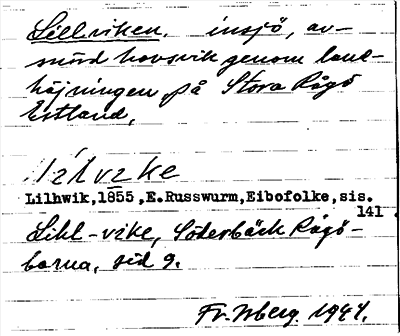 Lillviken, insjö, av-
snörd havsvik genom land-
höjningen på Stora Rågö
Estland.
lílvīke
Lilhwik,1855,E.Russwurm,Eibofolke,sis.
141.
Lihl-vike, Söderbäck Rågö-
borna, sid 9.
Fr. Wberg. 1941.